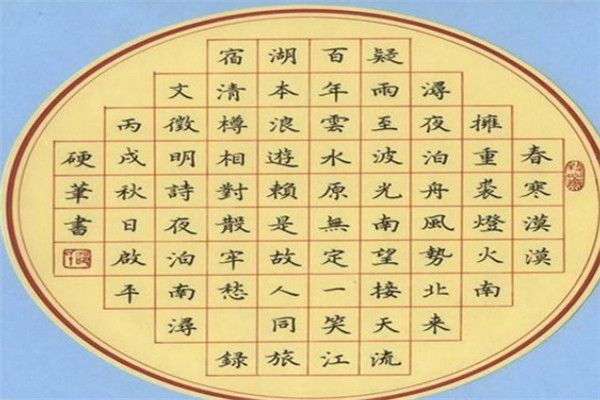 春寒漠漠
擁重裘燈火南
潯夜泊舟風勢北來
疑雨至波光南望接天流
百年雲水原無定一笑江
湖本浪遊賴是故人同旅
宿清樽相對散牢愁 錄
文徵明詩夜泊南潯
丙戌秋日啟平
硬筆書